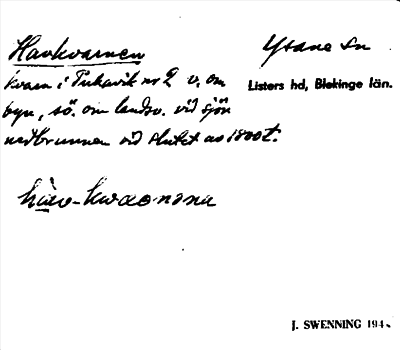 Havkvarnen
Ysane Sn
kvarn i Tukavik nr 2 v. om
Listers hd, Blekinge län.
byn, sö. om landsv. vid sjön
nedbrunnen vid slutet av 1800t.
J. SWENNING 194